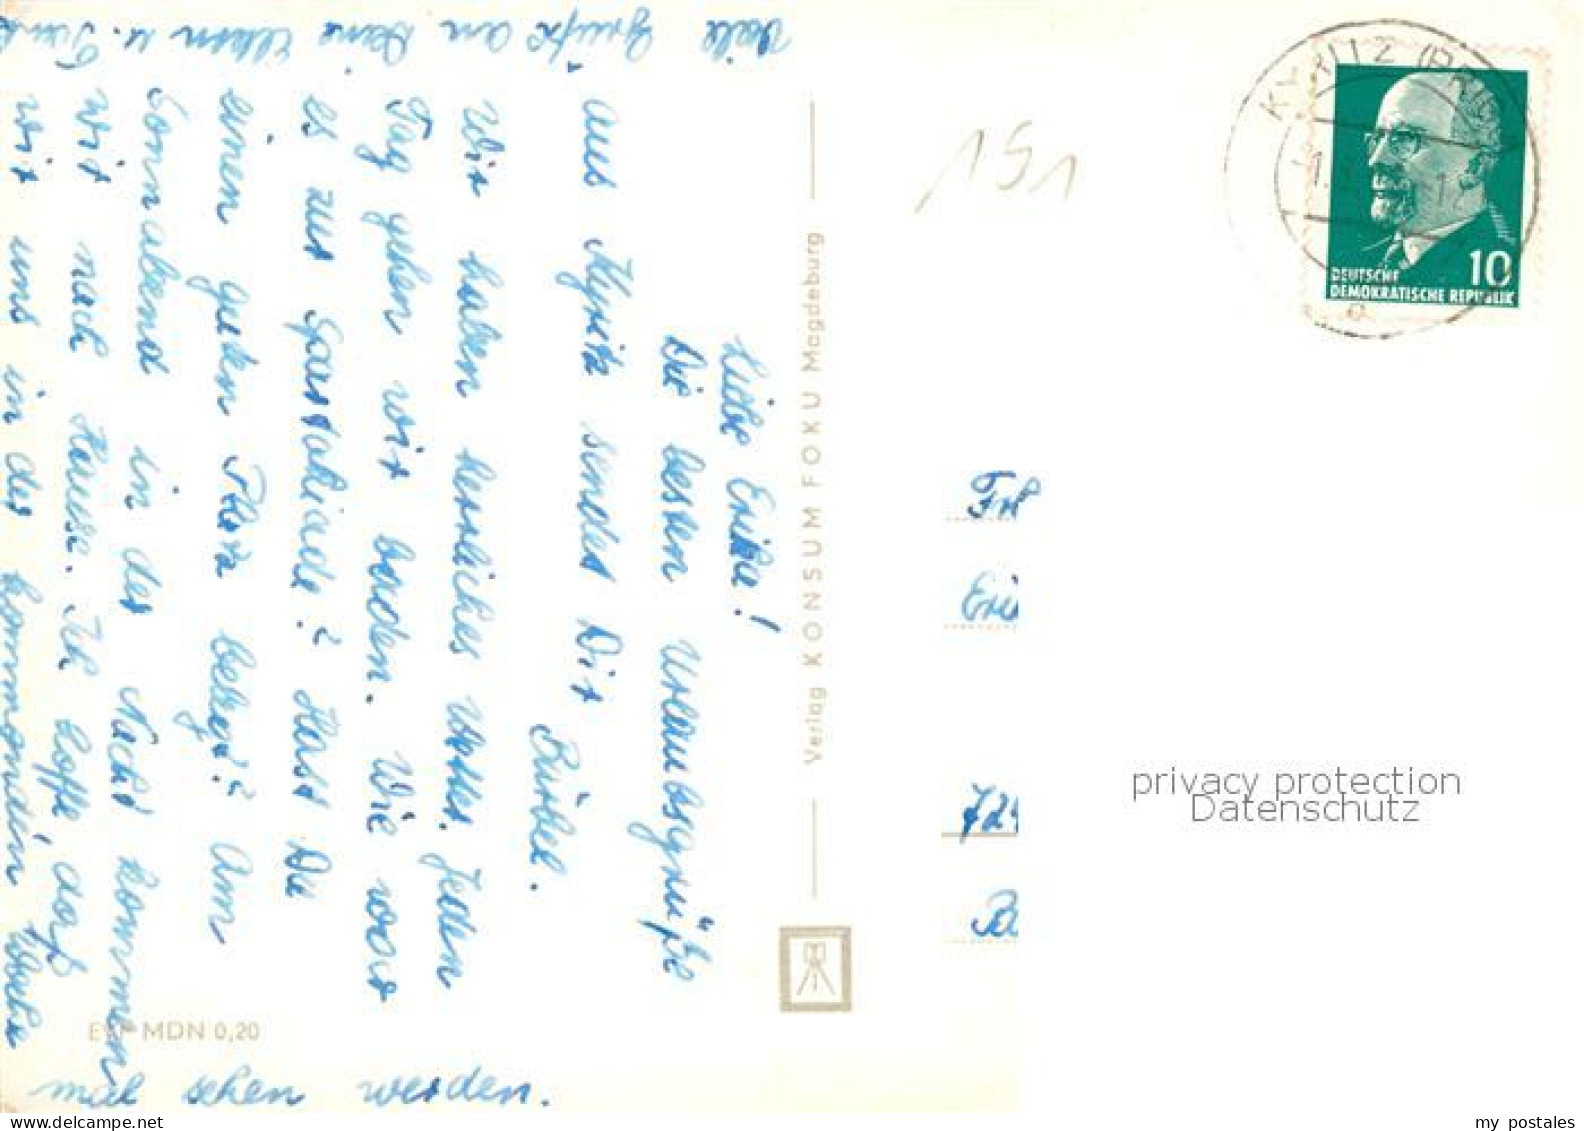 Liebe Erika!
Die besten Urlaubsgrüße
aus Kyritz sendet Dir
Bärbel.
Wir haben herrliches Wetter. Jeden
Tag gehen wir baden. Wie war
es zur Spartakiade? Hast Du
einen guten Platz belegt? Am
Sonnabend in der Nacht kommen
wir nach Hause. Ich hoffe, daß
wir uns in der kommenden Woche
mal sehen werden.
Viele Grüße an Deine Eltern u.
Verlag KONSUM FOKU Magdeburg
EVP MDN 0,20
191
KYRITZ (PRIGN
DEUTSCHE
DEMOKRATISCHE REPUBLIK
10
Frl
Eri
724
privacy protection
Datenschutz
my postales